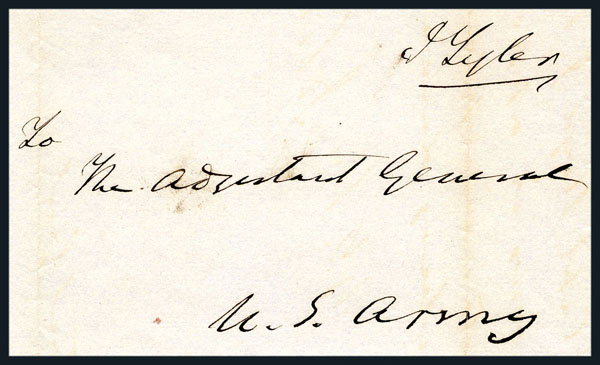 J Tyler
To
The Adjutant General
U. S. Army